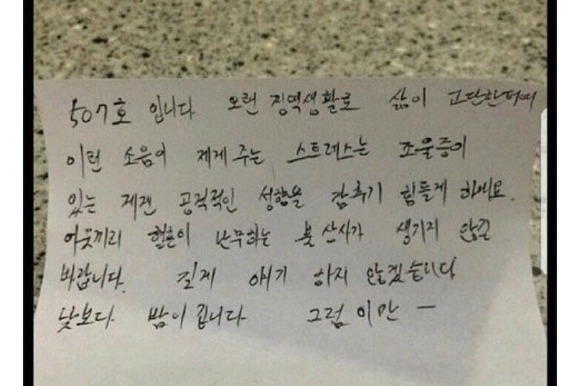 507호 입니다 오랜 징역생활로 삶이 고단한데에
이런 소음이 제게 주는 스트레스는 조울증이
있는 제겐 공격적인 성향을 감추기 힘들게 하네요.
이웃끼리 혈흔이 난무하는 불상사가 생기지 않길
바랍니다. 길게 얘기 하지 않겠습니다
낮보다 밤이 깁니다 그럼 이만 —